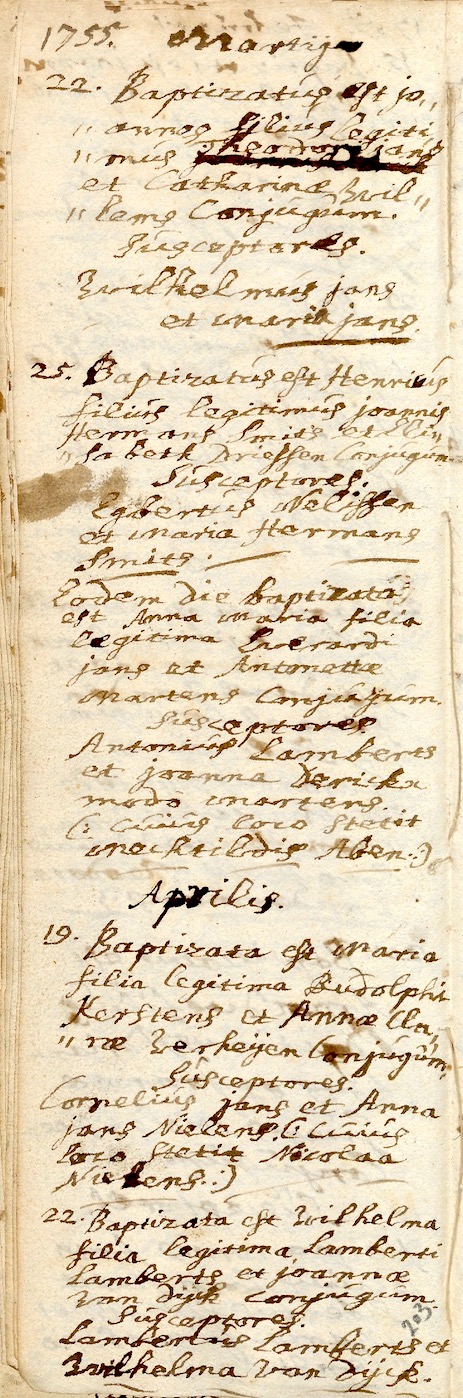 1755. Martij
22. Baptizatus est jo„
„ annes filius legiti
„ mus Theodori jans
et Catharinæ Wil„
„ lems Conjugum.
Susceptores.
Wilhelmus jans
et maria jans.
25. Baptizatus est Henricus
filius legitimus joannis
Hermans Smits et Eli„
„ sabeth Driessen Conjugum
Susceptores.
Egbertus Nelissen
et maria Hermans
Smits.
Eodem die baptizata
est Anna Maria filia
legitima Everardi
jans et Antonettæ
Martens Conjugum.
Susceptores
Antonius Lamberts
et joanna Derickx
modo martens.
(: cuius loco stetit
mechtildis Aben.:)
Aprilis.
19. Baptizata est Maria
filia legitima Rudolphi
Kerstens et Annæ Cla„
„ ræ Verheijen Conjugum.
Susceptores.
Cornelius jans et Anna
jans Nielens. (: cuius
loco stetit Nicolaa
Nielens.:)
22. Baptizata est Wilhelma
filia legitima Lamberti
Lamberts et joannæ
van Dijck Conjugum
Susceptores.
Lambertus Lamberts et
Wilhelma van Dijck.
203